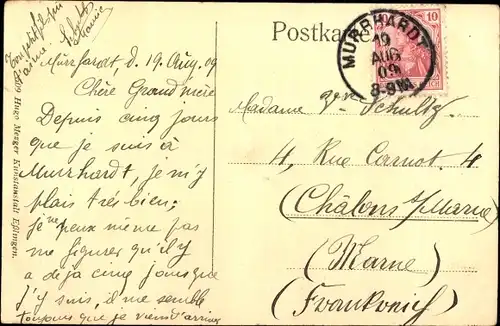 Postkarte
MURRHARDT
19
AUG
09
8-9 VM
10
Murrhardt, d. 19 Aug. 09
Chère Grand'mère
Depuis cinq jours
que je suis à
Murrhardt, je m'y
plais très-bien;
je ne peux même pas
me figurer qu'il y
a déjà cinq jours que
j'y suis, il me semble
toujours que je viens d'arriver
Madame Vve Schultz
4, Rue Carnot. 4
(Châlons s/Marne)
(Marne)
(Frankreich)
Hugo Mezger Kunstanstalt Eßlingen.